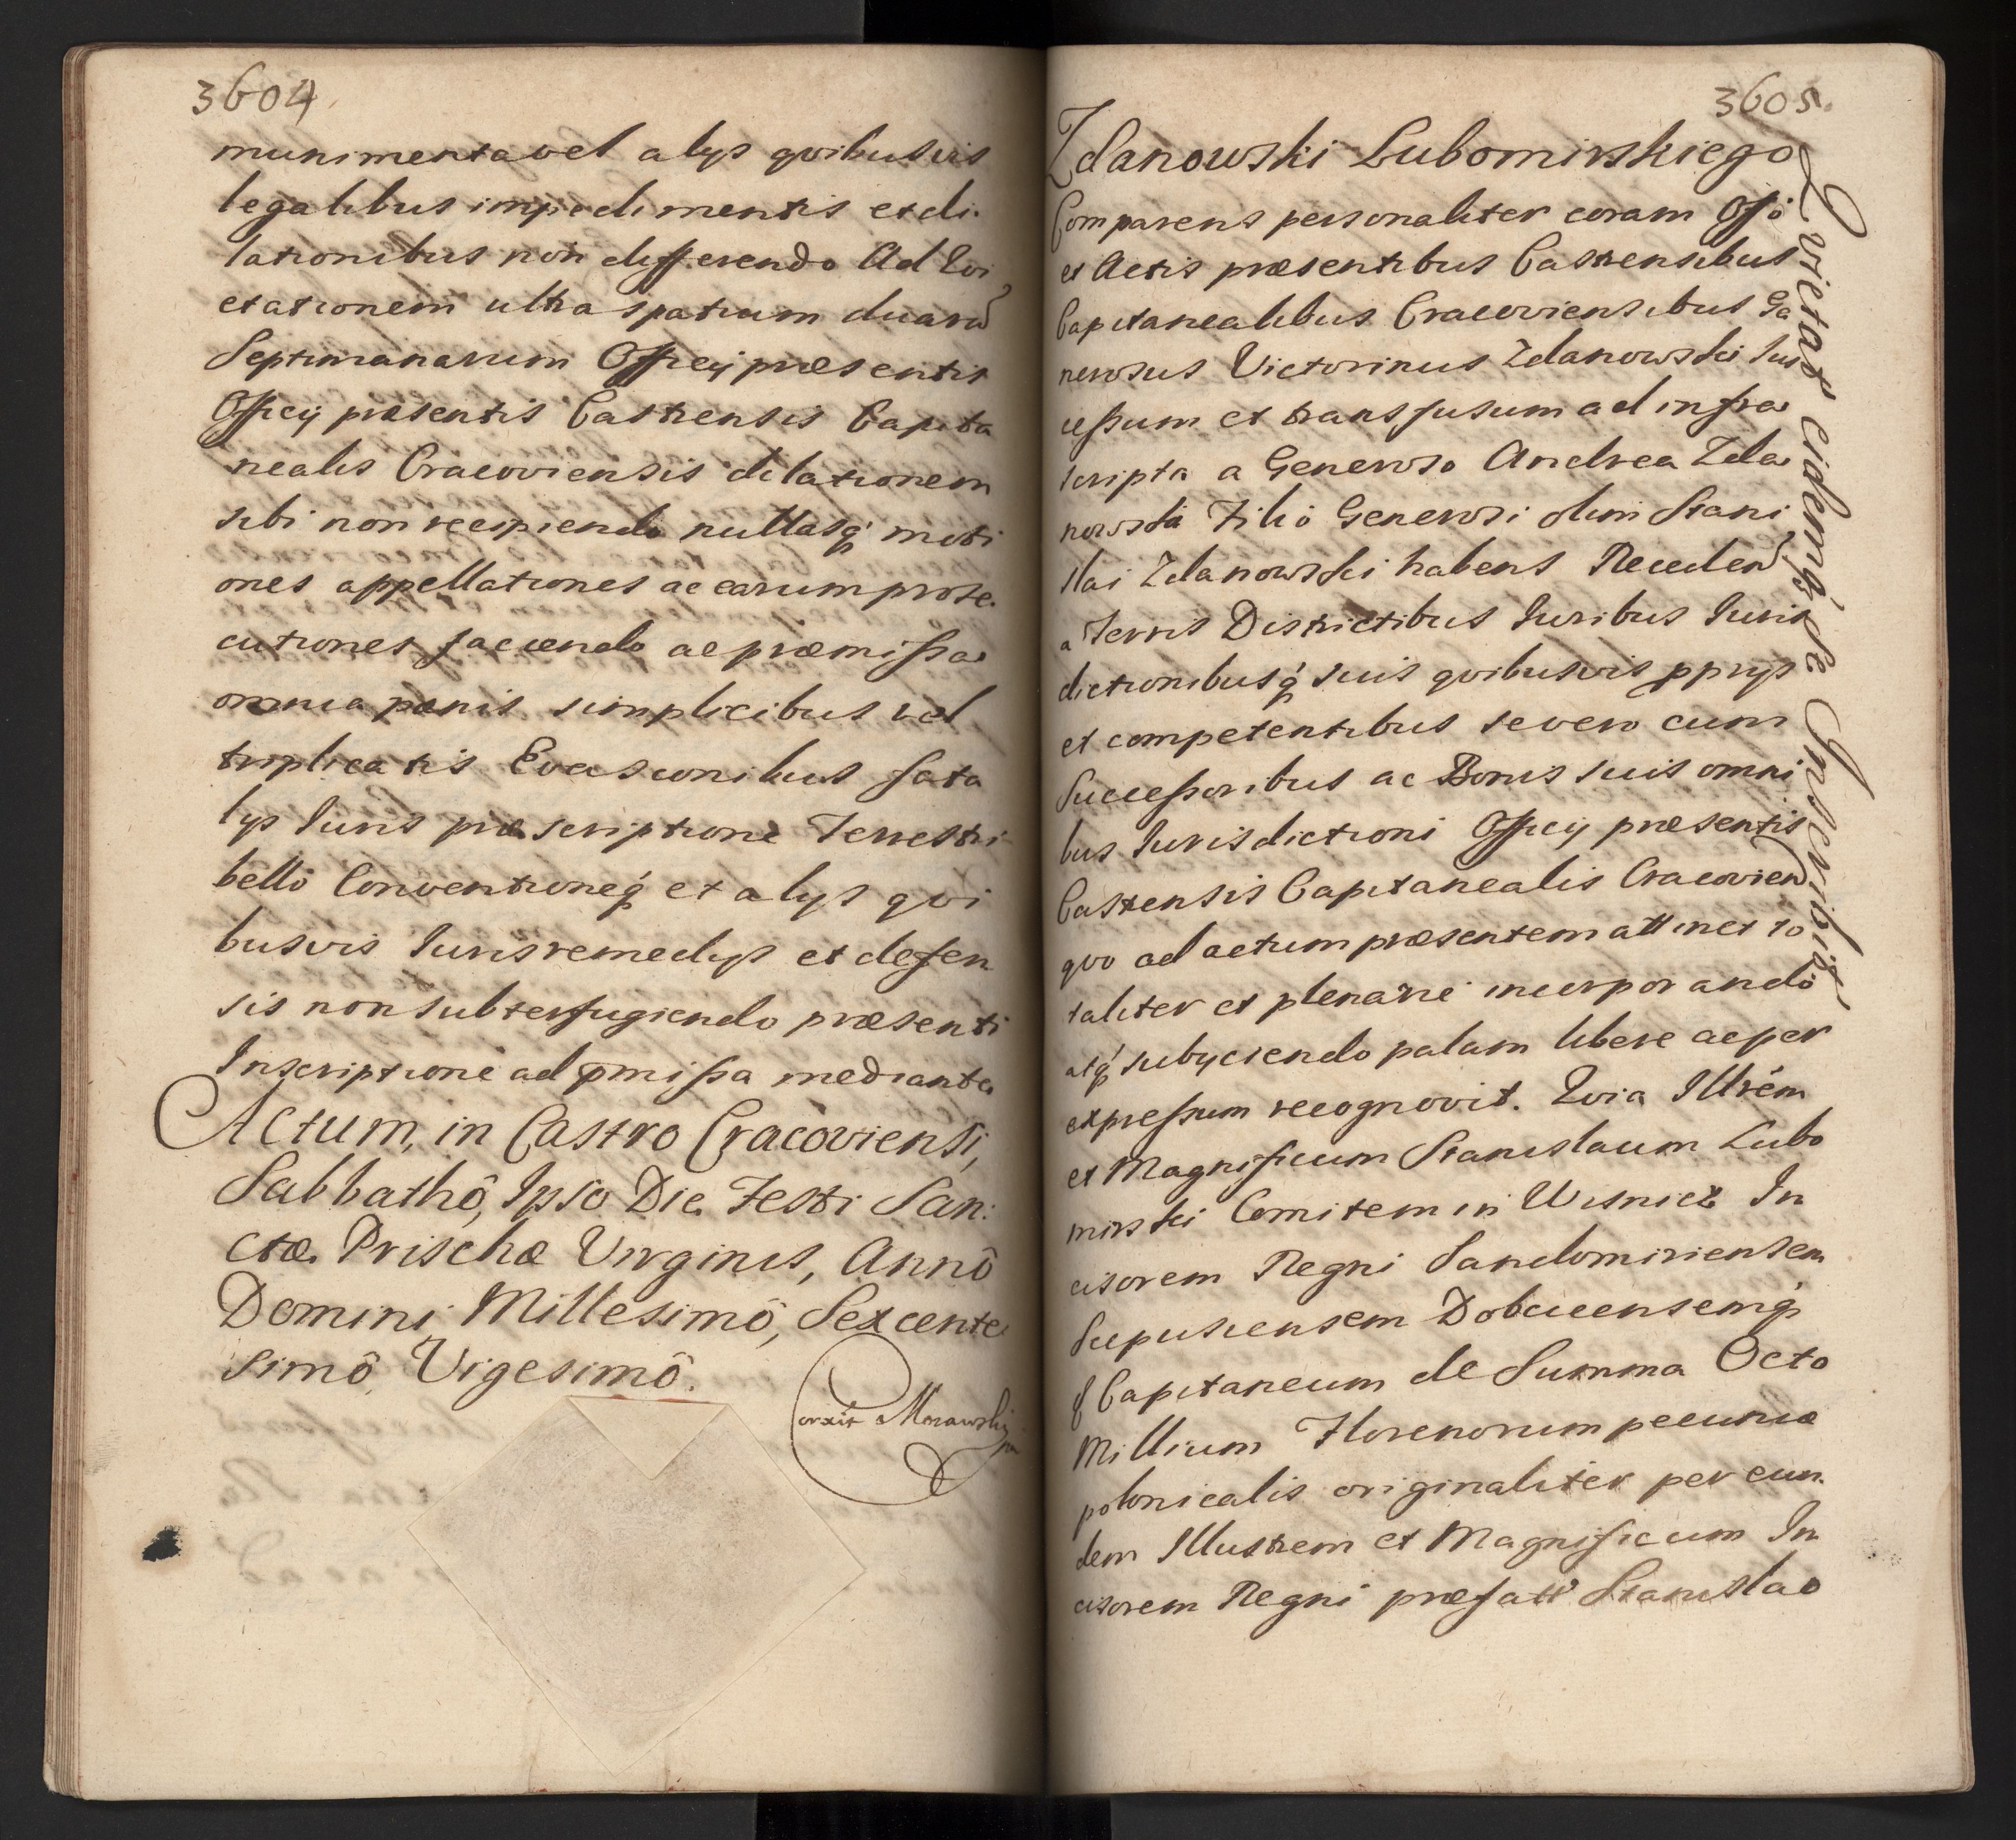 3604
munimenta vel alys qvibusvis
legalibus impedimentis et di
lationibus non differendo Ad Evi
ctationem ultra spatium duarū
Septimanarum Officij præsentis
Officij præsentis Castrensis Capita
nealis Cracoviensis dilationem
sibi non recipiendo nullasq́ moti
ones appellationes ac earum prose
cutiones faciendo ac præmissa
omnia pænis simplicibus vel
triplicatis Evasionibus fata
lys Iuris præscriptione Terrestri
bellô Conventioneq́ et alys qvi
busvis Iuris remedys et defen
sis non subterfugiendo præsenti
Inscriptione ad p̄missa mediante
Actum, in Castro Cracoviensi,
Sabbathô, Ipso Die Festi San:
ctæ Prischæ Virginis, Annô
Domini Millesimô, Sexcente
simô, Vigesimô.
Corxit Morawski
3605.
Zdanowski Lubomirskiego
Comparens personaliter coram Offô
et Actis præsentibus Castrensibus
Capitanealibus Cracoviensibus Ge
nerosus Victorinus Zdanowski Ius
cessum et transfusum ad infra
scripta a Generoso Andrea Zda
nowski Filiô Generosi olim Stani
slai Zdanowski habens Receden̄
a Terris Districtibus Iuribus Iuris
dictionibusq́ suis qvibusvis pprys
et competentibus se vero cum
Successoribus ac Bonis suis omni
bus Iurisdictioni Officij præsentis
Castrensis Capitanealis Cracovien̄
qvo ad actum præsentem attinet to
taliter et plenarie incorporandô
atq́ subyciendo palam libere ac per
expressum recognovit. Qvia Illrém
et Magnificum Stanislaum Lubo
mirski Comitem in Wisnicz In
cisorem Regni Sandomiriensem
Scepusiensem Dobczcensemq́
Capitaneum de Summa Octo
Millium Florenorum pecuniæ
polonicalis originaliter per eun
dem Illustrem et Magnificum In
cisorem Regni præfatô Stanislao
Qvietat eidemq́ se Inscribit